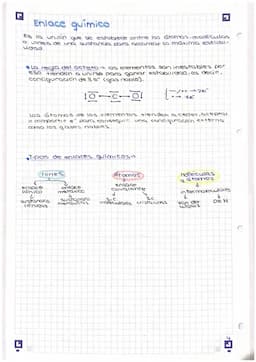 Enlace químico
Es la unión que se establece entre los átomos, moléculas
o iones de una sustancia para alcanzar la máxima estabili-
dad
La regla del octeto → los elementos son inestables por
eso tienden a unirse para ganar estabilidad, es decir,
configuración de 8 e⁻ (gas noble).
O — C — O
Los átomos de los elementos tienden a ceder, aceptar
o compartir e⁻ para conseguir una configuración externa
como los gases nobles.
Tipos de enlaces químicos
Iones átomos moléculas
o átomos
enlace enlace enlace intermoleculares
iónico metálico covalente
sustancias sustancias moléculas cristales Van der De H
iónicas metálicas Waals